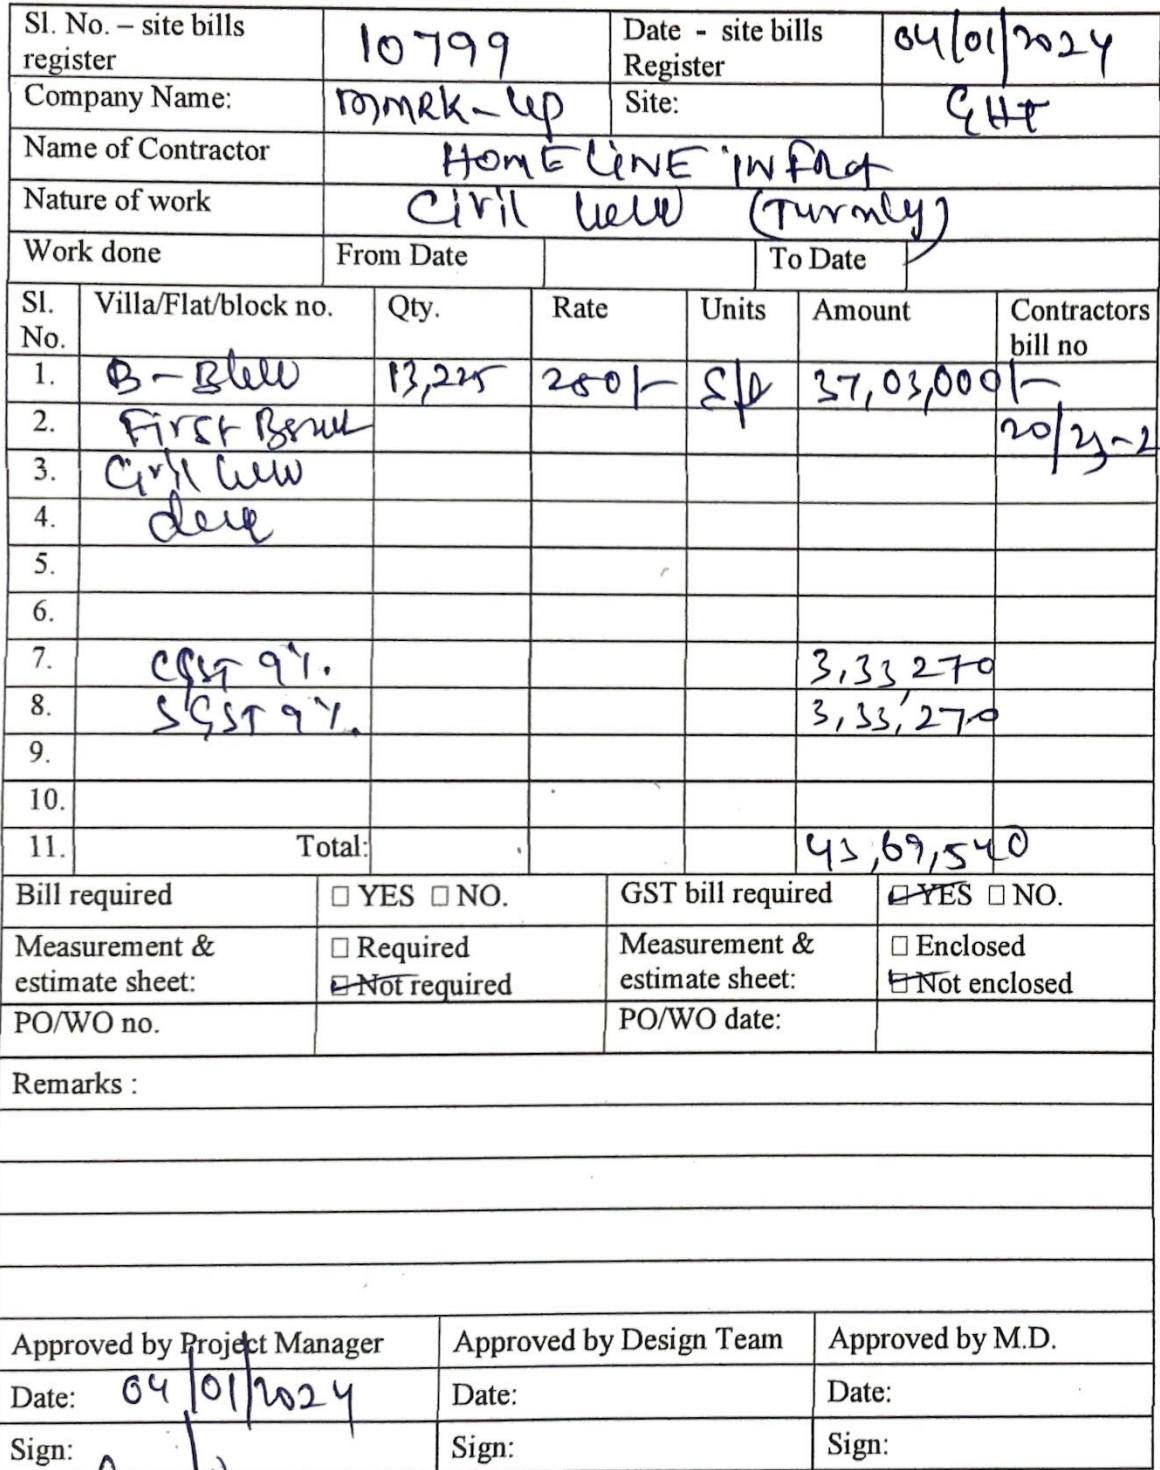 Sl. No. – site bills register 10799 Date - site bills Register 04/01/2024
Company Name: Site: GHT
Name of Contractor HOMELINE INFRA
Nature of work Civil
Work done From Date To Date
Sl. No. Villa/Flat/block no. Qty. Rate Units Amount Contractors bill no
1. B - 13,225 280/- 37,03,000/-
2. First 20/23-2
3. Civil
4.
5.
6.
7. CGST 9%. 3,33 270
8. SGST 9%. 3,33,270
9.
10.
11. Total: 43,69,540
Bill required ☐ YES ☐ NO. GST bill required ☐ YES ☐ NO.
Measurement & estimate sheet: ☐ Required ☐ Not required Measurement & estimate sheet: ☐ Enclosed ☐ Not enclosed
PO/WO no. PO/WO date:
Remarks :
Approved by Project Manager Approved by Design Team Approved by M.D.
Date: 04/01/2024 Date: Date:
Sign: Sign: Sign: